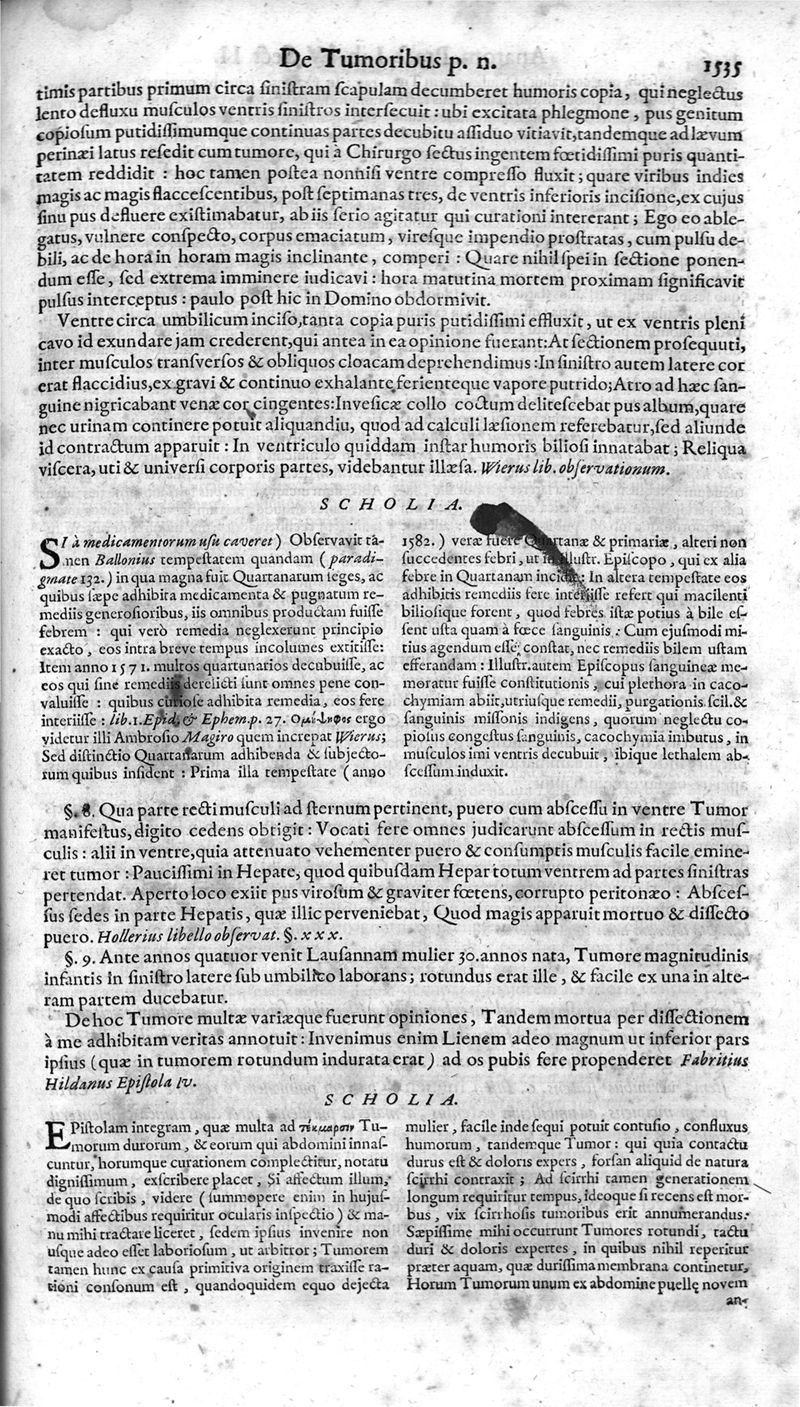 De Tumoribus p. n.
1535
timis partibus primum circa ſiniſtram ſcapulam decumberet humoris copia, qui neglectus
lento defluxu muſculos ventris ſiniſtros interſecuit : ubi excitata phlegmone, pus genitum
copioſum putidiſſimumque continuas partes decubitu aſſiduo vitiavit, tandemque ad lævum
perinæi latus reſedit cum tumore, qui à Chirurgo ſectus ingentem fœtidiſſimi puris quanti-
tatem reddidit : hoc tamen poſtea nonniſi ventre compreſſo fluxit ; quare viribus indies
magis ac magis flacceſcentibus, poſt ſeptimanas tres, de ventris inferioris inciſione, ex cujus
ſinu pus defluere exiſtimabatur, ab iis ſerio agitatur qui curationi intererant ; Ego eo able-
gatus, vulnere conſpecto, corpus emaciatum, vireſque impendio proſtratas, cum pulſu de-
bili, ac de hora in horam magis inclinante, comperi : Quare nihil ſpei in ſectione ponen-
dum eſſe, ſed extrema imminere iudicavi : hora matutina mortem proximam ſignificavit
pulſus interceptus : paulo poſt hic in Domino obdormivit.
Ventre circa umbilicum inciſo, tanta copia puris putidiſſimi effluxit, ut ex ventris pleni
cavo id exundare jam crederent, qui antea in ea opinione fuerant : At ſectionem proſequuti,
inter muſculos tranſverſos & obliquos cloacam deprehendimus : In ſiniſtro autem latere cor
erat flaccidius, ex gravi & continuo exhalante ferienteque vapore putrido; Atro ad hæc ſan-
guine nigricabant venæ cor cingentes: In veſicæ collo coctum deliteſcebat pus album, quare
nec urinam continere potuit aliquandiu, quod ad calculi læſionem referebatur, ſed aliunde
id contractum apparuit : In ventriculo quiddam inſtar humoris bilioſi innatabat ; Reliqua
viſcera, uti & univerſi corporis partes, videbantur illæſa. Wierus lib. obſervationum.
SCHOLIA.
SI à medicamentorum uſu caveret ) Obſervavit tā-
nen Ballonius tempeſtatem quandam ( paradi-
gmate 132. ) in qua magna fuit Quartanarum ſeges, ac
quibus ſæpe adhibita medicamenta & pugnatum re-
mediis generoſioribus, iis omnibus productam fuiſſe
febrem : qui verò remedia neglexerunt principio
exacto, eos intra breve tempus incolumes extitiſſe:
Item anno 1571. multos quartunarios decubuiſſe, ac
eos qui ſine remediis derelicti ſunt omnes pene con-
valuiſſe : quibus curioſe adhibita remedia, eos fere
interiiſſe : lib. 1. Epid. & Ephem. p. 27. ergo
videtur illi Ambroſio Magiro quem increpat Wierus;
Sed diſtinctio Quartanarum adhibenda & ſubjecto-
rum quibus inſident : Prima illa tempeſtate ( anno
1582. ) veræ fuere Quartanæ & primariæ, alteri non
ſuccedentes febri, ut in illuſtr. Epiſcopo, qui ex alia
febre in Quartanam incidit: In altera tempeſtate eos
adhibitis remediis fere interiiſſe refert qui macilenti
bilioſique forent, quod febres iſtæ potius à bile eſ-
ſent uſta quam à fœce ſanguinis : Cum ejuſmodi mi-
tius agendum eſſe conſtat, nec remediis bilem uſtam
efferandam : Illuſtr. autem Epiſcopus ſanguineæ me-
moratur fuiſſe conſtitutionis, cui plethora in caco-
chymiam abiit, utriuſque remedii, purgationis ſcil. &
ſanguinis miſſonis indigens, quorum neglectu co-
pioſus congeſtus ſanguinis, cacochymia imbutus, in
muſculos imi ventris decubuit, ibique lethalem ab-
ſceſſum induxit.
§. 8. Qua parte recti muſculi ad ſternum pertinent, puero cum abſceſſu in ventre Tumor
manifeſtus, digito cedens obtigit : Vocati fere omnes judicarunt abſceſſum in rectis muſ-
culis : alii in ventre, quia attenuato vehementer puero & conſumptis muſculis facile emine-
ret tumor : Pauciſſimi in Hepate, quod quibuſdam Hepar totum ventrem ad partes ſiniſtras
pertendat. Aperto loco exiit pus viroſum & graviter fœtens, corrupto peritonæo : Abſceſ-
ſus ſedes in parte Hepatis, quæ illic perveniebat, Quod magis apparuit mortuo & diſſecto
puero. Hollerius libello obſervat. §. xxx.
§. 9. Ante annos quatuor venit Lauſannam mulier 30. annos nata, Tumore magnitudinis
infantis in ſiniſtro latere ſub umbilico laborans ; rotundus erat ille, & facile ex una in alte-
ram partem ducebatur.
De hoc Tumore multæ variæque fuerunt opiniones, Tandem mortua per diſſectionem
à me adhibitam veritas annotuit : Invenimus enim Lienem adeo magnum ut inferior pars
ipſius ( quæ in tumorem rotundum indurata erat ) ad os pubis fere propenderet Fabritius
Hildanus Epiſtola IV.
SCHOLIA.
EPiſtolam integram, quæ multa ad Tu-
morum durorum, & eorum qui abdomini innaſ-
cuntur, horumque curationem complectitur, notatu
digniſſimum, exſcribere placet, Si affectum illum,
de quo ſcribis, videre ( ſummopere enim in hujuſ-
modi affectibus requiritur ocularis inſpectio ) & ma-
nu mihi tractare liceret, ſedem ipſius invenire non
uſque adeo eſſet laborioſum, ut arbitror ; Tumorem
tamen hunc ex cauſa primitiva originem traxiſſe ra-
tioni conſonum eſt, quandoquidem equo dejecta
mulier, facile inde ſequi potuit contuſio, confluxus
humorum, tandemque Tumor : qui quia contactu
durus eſt & doloris expers, forſan aliquid de natura
ſcirrhi contraxit ; Ad ſcirrhi tamen generationem
longum requiritur tempus, ideoque ſi recens eſt mor-
bus, vix ſcirrhoſis tumoribus erit annumerandus:
Sæpiſſime mihi occurrunt Tumores rotundi, tactu
duri & doloris expertes, in quibus nihil reperitur
præter aquam, quæ duriſſima membrana continetur,
Horum Tumorum unum ex abdomine puellę novem
an-